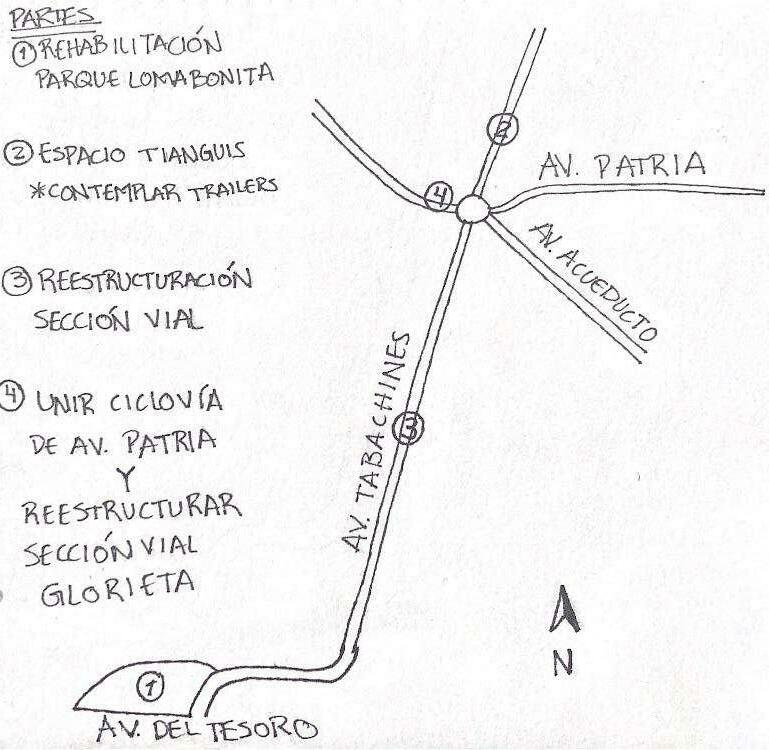 PARTES
① REHABILITACIÓN
PARQUE LOMA BONITA
② ESPACIO TIANGUIS
*CONTEMPLAR TRAILERS
③ REESTRUCTURACIÓN
SECCIÓN VIAL
④ UNIR CICLOVÍA
DE AV. PATRIA
Y
REESTRUCTURAR
SECCIÓN VIAL
GLORIETA
②
④
AV. PATRIA
AV. ACUEDUCTO
AV. TABACHINES
③
①
AV. DEL TESORO
N